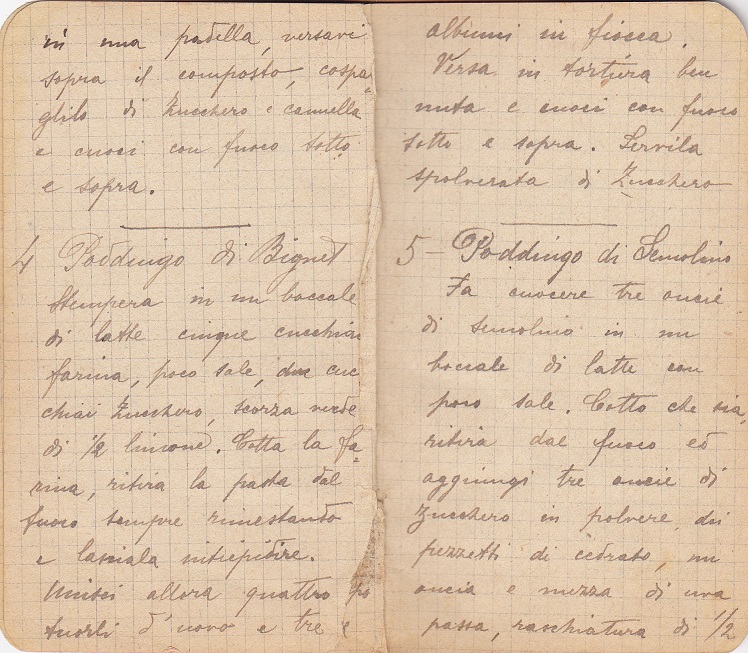 in una padella, versavi
sopra il composto, cospar=
glilo di Zucchero e cannella
e cuoci con fuoco sotto
e sopra.
4 Poddingo di Bignet
Stempera in un boccale
di latte cinque cucchiai
farina, poco sale, due cuc
chiai Zucchero, scorza verde
di 1/2 limone. Cotta la fa=
rina, ritira la pasta dal
fuoco sempre rimestando
e lasciala intiepidire.
Unisci allora quattro
tuorli d'uovo e tre
albumi in fiocca.
Versa in tortiera ben
unta e cuoci con fuoco
sotto e sopra. Servila
spolverata di Zucchero
5 - Poddingo di Semolino
Fa cuocere tre oncie
di semolino in un
boccale di latte con
poco sale. Cotto che sia,
ritira dal fuoco ed
aggiungi tre oncie di
Zucchero in polvere, dei
pezzetti di cedrato, un
oncia e mezza di uva
passa, raschiatura di 1/2